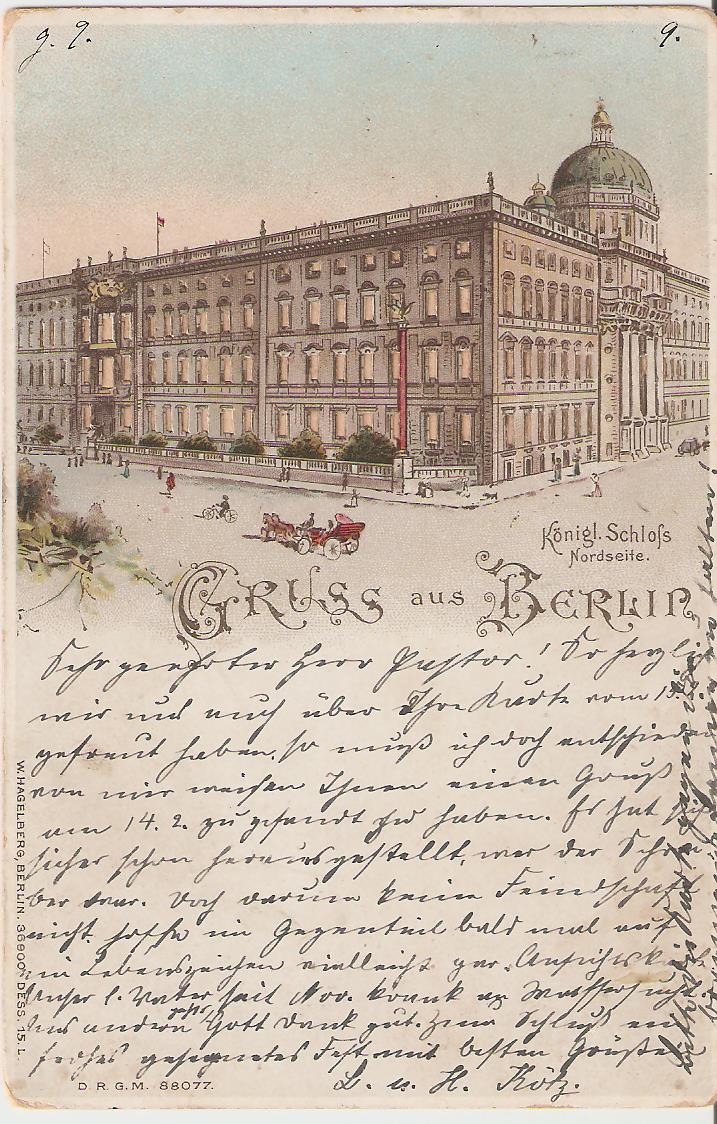 9.
Königl. Schloß
Nordseite.
GRUSS aus BERLIN
Sehr geehrter Herr Pastor! So herzlich
wir uns auch über Ihre Karte vom
gefreut haben, so muß ich doch entschieden
von mir weisen Ihnen einen Gruß
am 14. 2. zugesandt zu haben. Es hat sich
sicher schon herausgestellt, wer der Schrei-
ber war. Doch darum keine Feindschaft
nicht, hoffe im Gegenteil bald mal auf
ein Lebenszeichen vielleicht per Ansichtskarte.
Unser l. Vater seit Nov. krank an Wassersucht
uns andern geht's Gott Dank gut. Zum Schluß ein
frohes gesegnetes Fest mit besten Grüßen
L. u. H. Kötz.
W. HAGELBERG, BERLIN. 36900, DESS. 15. L.
D. R. G. M. 88077.